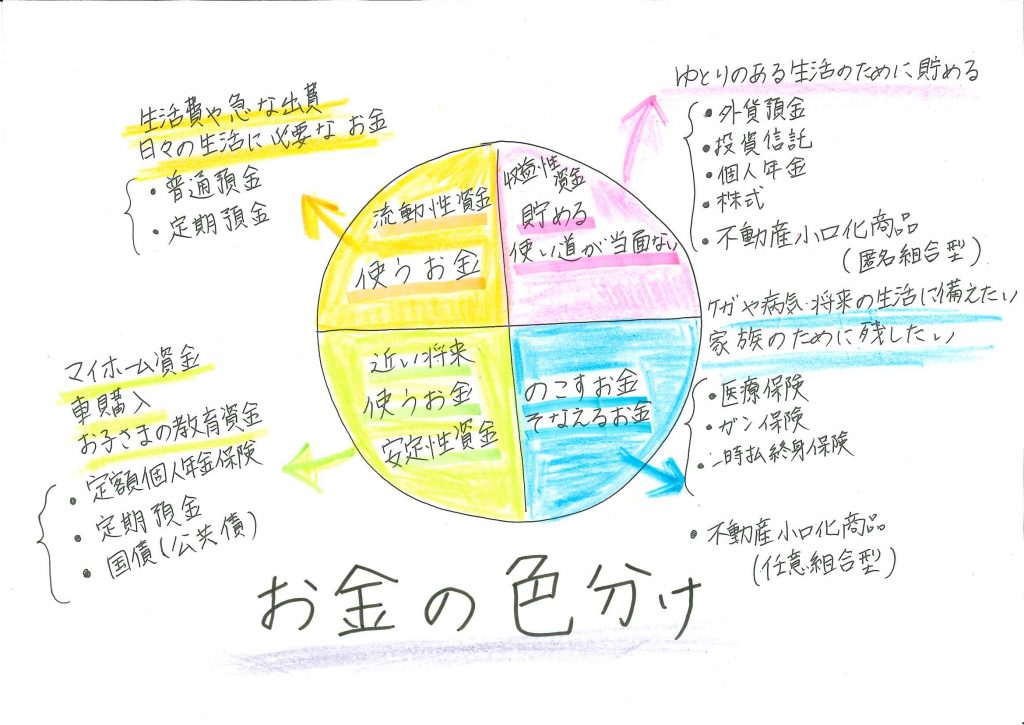 生活費や急な出費
日々の生活に必要なお金
・普通預金
・定期預金
流動性資金
使うお金
収益性資金
貯める
使い道が当面ない
ゆとりのある生活のために貯める
・外貨預金
・投資信託
・個人年金
・株式
・不動産小口化商品
(匿名組合型)
マイホーム資金
車購入
お子さまの教育資金
・定額個人年金保険
・定期預金
・国債(公共債)
近い将来
使うお金
安定性資金
のこすお金
そなえるお金
ケガや病気・将来の生活に備えたい
家族のために残したい
・医療保険
・ガン保険
・一時払終身保険
・不動産小口化商品
(任意組合型)
お金の色分け